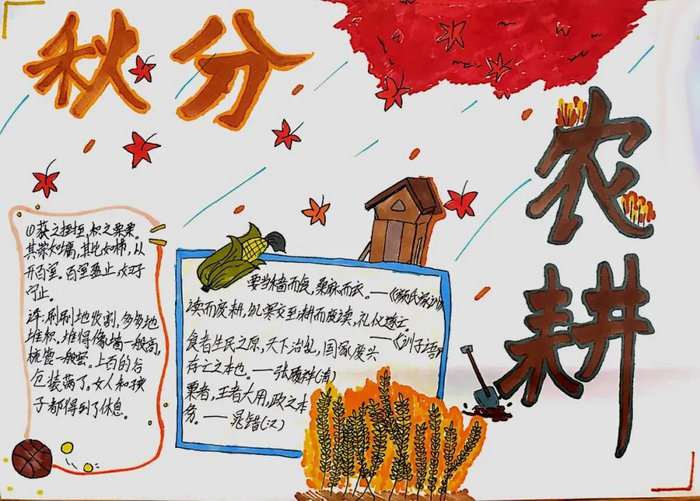 秋分
农耕
①获之挃挃,积之栗栗,
其崇如墉,其比如栉,以
开百室。百室盈止 妇子
宁止。
译:刷刷地收割,多多地
堆积,堆得像墙一般高,
梳篦一般密。上百的谷
仓装满了,女人和孩
子都得到了休息。
要当穑而食,桑麻而衣。——《颜氏家训》
读而废耕,饥寒交至;耕而废读,礼仪遂亡。
——《训子语》
食者生民之原,天下治乱,国家废兴
存亡之本也。——张履祥(清)
粟者,王者大用,政之本
务。——晁错(汉)